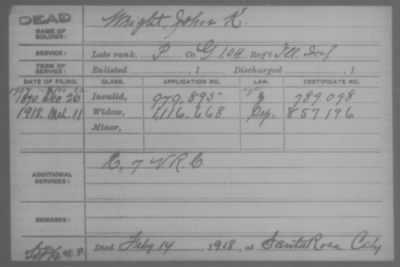 DEAD
NAME OF SOLDIER: Wright, John K.
SERVICE: Late rank, P Co. G 104 Reg't Ill. Inf
TERM OF SERVICE: Enlisted , 1 Discharged , 1
DATE OF FILING. CLASS. APPLICATION NO. LAW. CERTIFICATE NO.
1890 Dec 26 Invalid, 970.895 789098
1918. Mch. 11 Widow, 1116.668 857196
Minor,
ADDITIONAL SERVICES: E, 7 V.R.C
REMARKS:
Died Feby 14, 1918, at Santa Rosa Cal